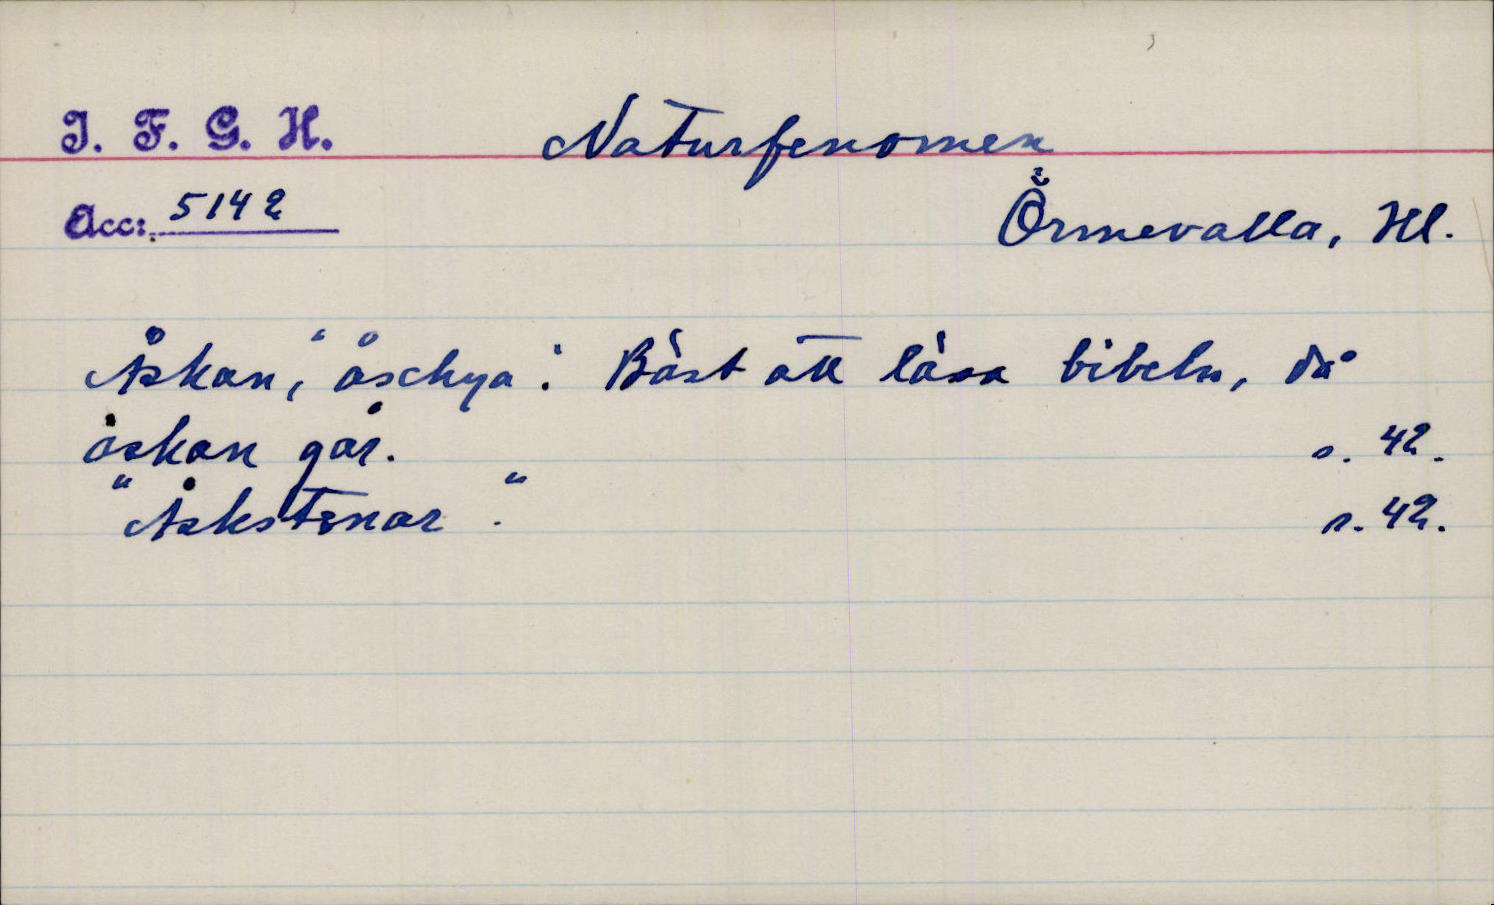 I. F. G. H.
Naturfenomen
Acc: 5142
Örmevalla, Hl.
Åskan, "åschya": Bäst att läsa bibeln, då
åskan går. s. 42.
"Åskstenar". s. 42.